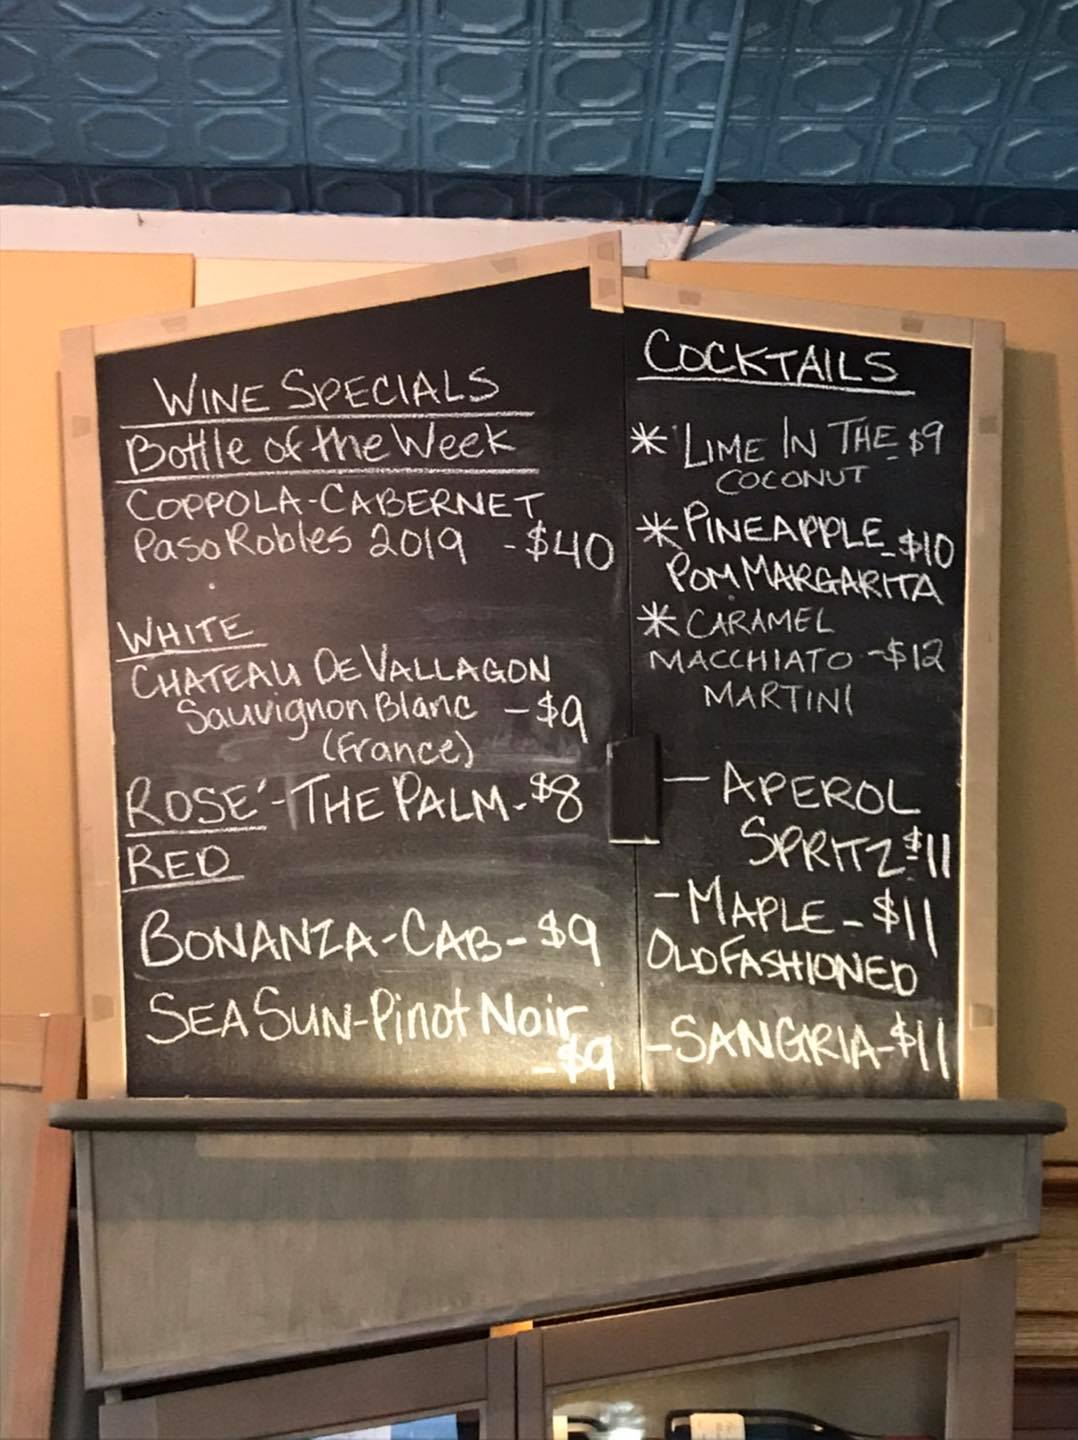 WINE SPECIALS
Bottle of the Week
COPPOLA-CABERNET
Paso Robles 2019 - $40
WHITE
CHATEAU DE VALLAGON
Sauvignon Blanc - $9
(France)
ROSE'-THE PALM-$8
RED
BONANZA-CAB-$9
SEA SUN-Pinot Noir
-$9
COCKTAILS
* LIME IN THE $9
COCONUT
* PINEAPPLE $10
POM MARGARITA
* CARAMEL
MACCHIATO -$12
MARTINI
- APEROL
SPRITZ-$11
-MAPLE-$11
OLD FASHIONED
-SANGRIA-$11